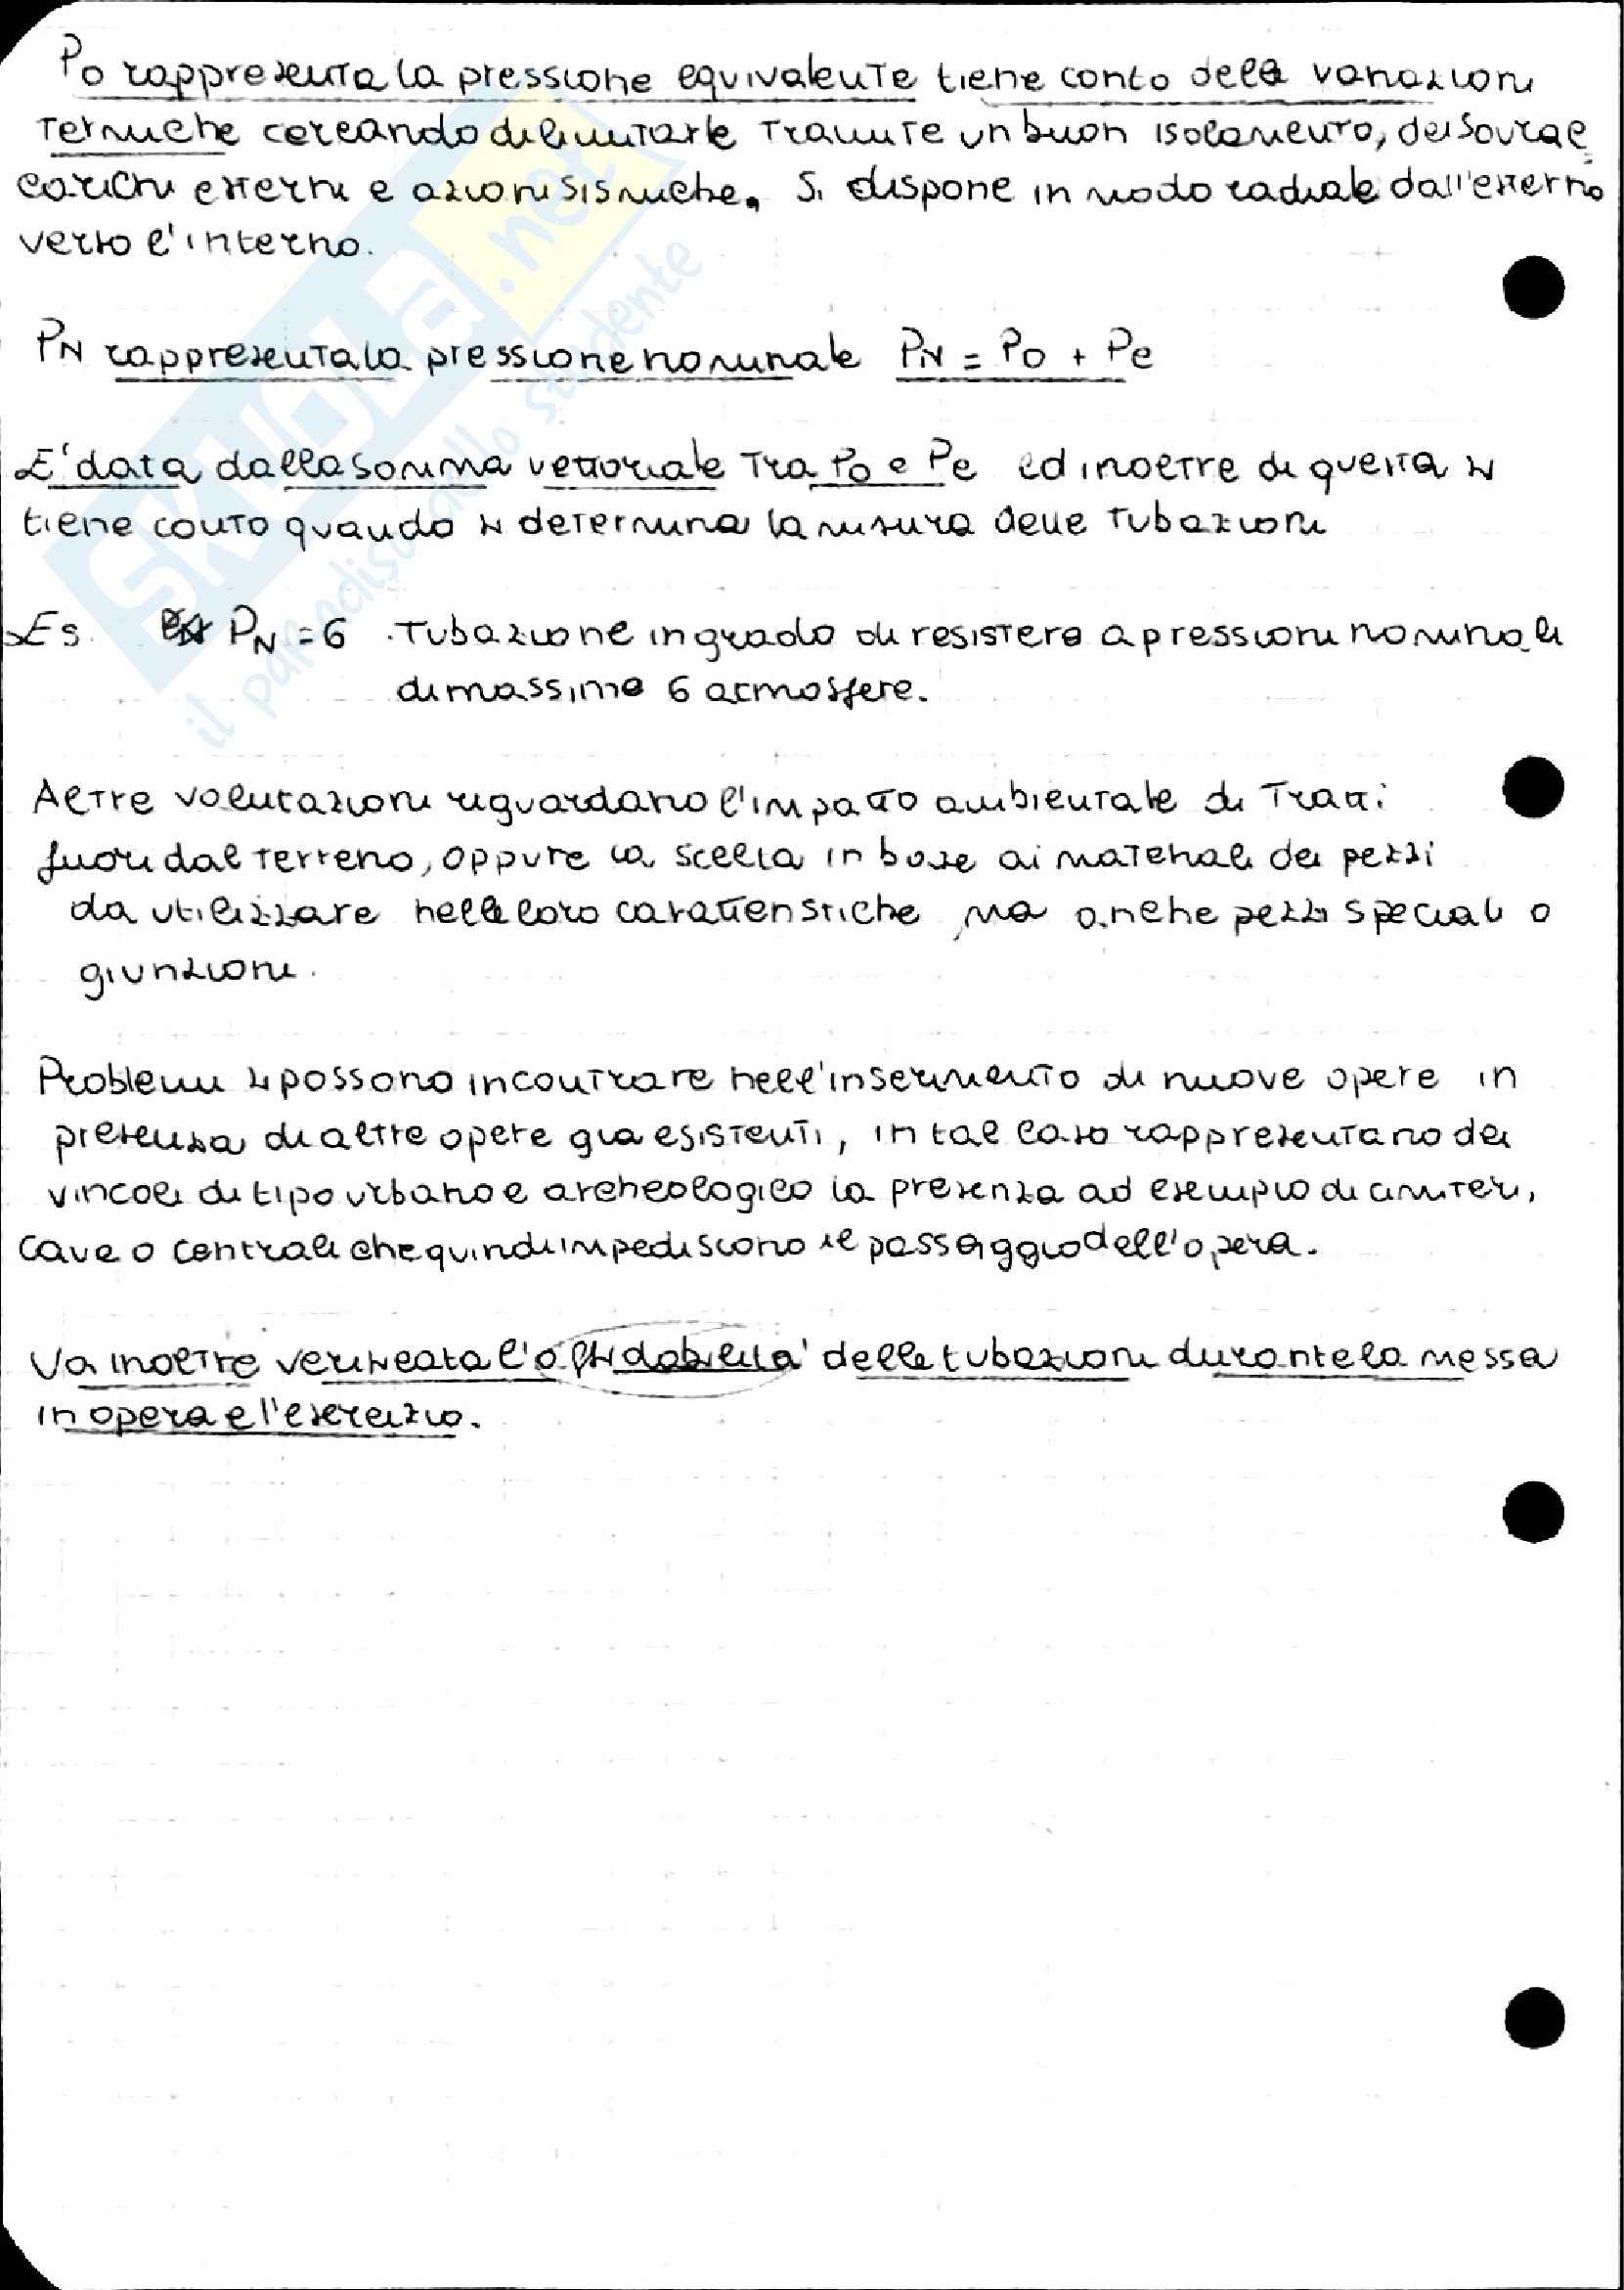 Po rappresenta la pressione equivalente tiene conto delle variazioni
termiche cercando di limitarle tramite un buon isolamento, dei sovrac
carichi esterni e azioni sismiche. Si dispone in modo radiale dall'esterno
verso l'interno.
PN rappresenta la pressione nominale PN = Po + Pe
E' data dalla somma vettoriale tra Po e Pe ed inoltre di questa si
tiene conto quando si determina la misura delle tubazioni
Es. PN = 6 Tubazione in grado di resistere a pressioni nominali
di massimo 6 atmosfere.
Altre valutazioni riguardano l'impatto ambientale di tratti
fuori dal terreno, oppure la scelta in base ai materiali dei pezzi
da utilizzare nelle loro caratteristiche, ma anche pezzi speciali o
giunzioni.
Problemi si possono incontrare nell'inserimento di nuove opere in
presenza di altre opere gia esistenti, in tal caso rappresentano dei
vincoli di tipo urbano e archeologico la presenza ad esempio di cimiteri,
cave o centrali che quindi impediscono il passaggio dell'opera.
Va inoltre verificata l'affidabilita' delle tubazioni durante la messa
in opera e l'esercizio.
SKUOLA.net
il paradiso dello studente